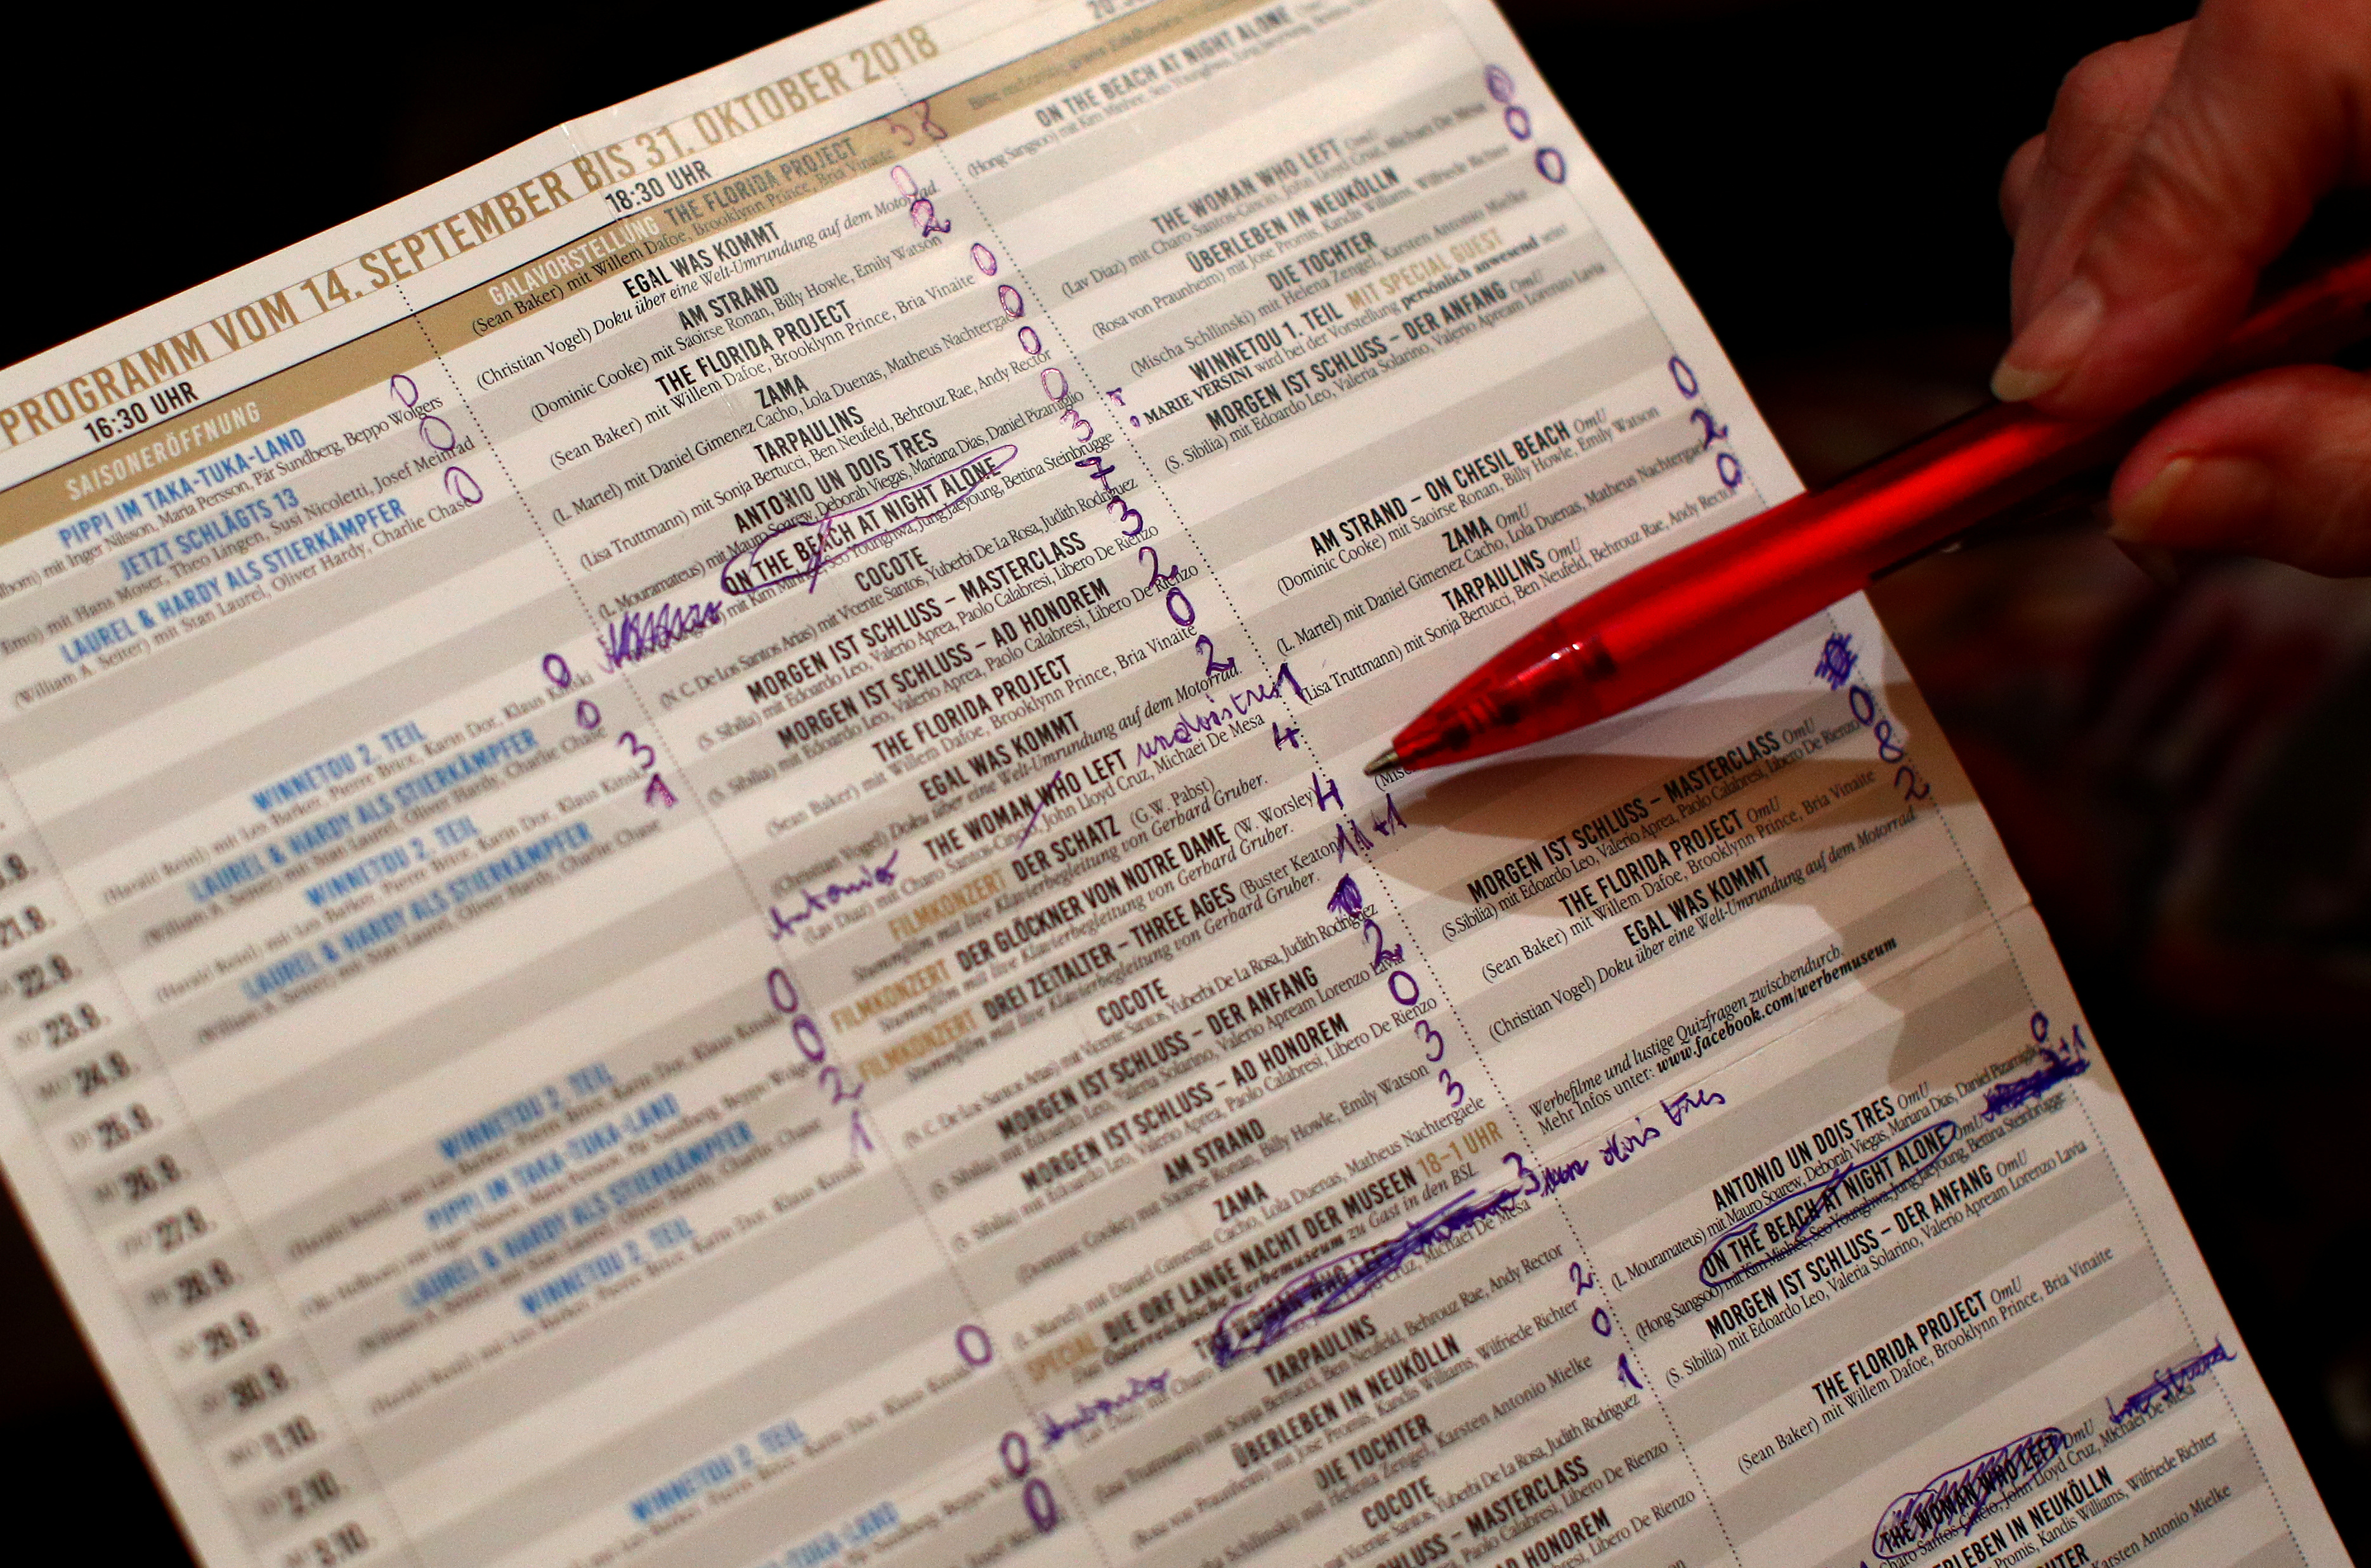 PROGRAMM VOM 14. SEPTEMBER BIS 31. OKTOBER 2018
16:30 UHR
SAISONERÖFFNUNG
PIPPI IM TAKA-TUKA-LAND
mit Inger Nilsson, Maria Persson, Pär Sundberg, Beppo Wolgers
0
JETZT SCHLÄGTS 13
mit Hans Moser, Theo Lingen, Susi Nicoletti, Josef Meinrad
0
LAUREL & HARDY ALS STIERKÄMPFER
(William A. Seiter) mit Stan Laurel, Oliver Hardy, Charlie Chase
0
WINNETOU 2. TEIL
(Harald Reinl) mit Lex Barker, Pierre Brice, Karin Dor, Klaus Kinski
0
LAUREL & HARDY ALS STIERKÄMPFER
(William A. Seiter) mit Stan Laurel, Oliver Hardy, Charlie Chase
0
WINNETOU 2. TEIL
(Harald Reinl) mit Lex Barker, Pierre Brice, Karin Dor, Klaus Kinski
3
LAUREL & HARDY ALS STIERKÄMPFER
(William A. Seiter) mit Stan Laurel, Oliver Hardy, Charlie Chase
1
WINNETOU 2. TEIL
(Harald Reinl) mit Lex Barker, Pierre Brice, Karin Dor, Klaus Kinski
0
PIPPI IM TAKA-TUKA-LAND
mit Inger Nilsson, Maria Persson, Pär Sundberg, Beppo Wolgers
0
LAUREL & HARDY ALS STIERKÄMPFER
(William A. Seiter) mit Stan Laurel, Oliver Hardy, Charlie Chase
2
WINNETOU 2. TEIL
(Harald Reinl) mit Lex Barker, Pierre Brice, Karin Dor, Klaus Kinski
1
WINNETOU 2. TEIL
0
TAKA-LAND
0
0
21.9.
22.9.
23.9.
24.9.
25.9.
26.9.
27.9.
28.9.
29.9.
30.9.
1.10.
2.10.
3.10.
18:30 UHR
GALAVORSTELLUNG THE FLORIDA PROJECT
(Sean Baker) mit Willem Dafoe, Brooklynn Prince, Bria Vinaite
38
EGAL WAS KOMMT
(Christian Vogel) Doku über eine Welt-Umrundung auf dem Motorrad
0
AM STRAND
(Dominic Cooke) mit Saoirse Ronan, Billy Howle, Emily Watson
2
THE FLORIDA PROJECT
(Sean Baker) mit Willem Dafoe, Brooklynn Prince, Bria Vinaite
0
ZAMA
(L. Martel) mit Daniel Gimenez Cacho, Lola Duenas, Matheus Nachtergaele
0
TARPAULINS
(Lisa Truttmann) mit Sonja Bertucci, Ben Neufeld, Behrouz Rae, Andy Rector
0
ANTONIO UN DOIS TRES
(L. Mouramateus) mit Mauro Soarew, Deborah Viegas, Mariana Dias, Daniel Pizamiglio
0
ON THE BEACH AT NIGHT ALONE
mit Kim Minhee, Seo Younghwa, Jung Jaeyoung, Bettina Steinbrügge
3
COCOTE
(N. C. De Los Santos Arias) mit Vicente Santos, Yuberbi De La Rosa, Judith Rodriguez
7
MORGEN IST SCHLUSS – MASTERCLASS
(S. Sibilia) mit Edoardo Leo, Valerio Aprea, Paolo Calabresi, Libero De Rienzo
3
MORGEN IST SCHLUSS – AD HONOREM
(S. Sibilia) mit Edoardo Leo, Valerio Aprea, Paolo Calabresi, Libero De Rienzo
2
THE FLORIDA PROJECT
(Sean Baker) mit Willem Dafoe, Brooklynn Prince, Bria Vinaite
0
EGAL WAS KOMMT
(Christian Vogel) Doku über eine Welt-Umrundung auf dem Motorrad.
2
Antonio
THE WOMAN WHO LEFT un dois tres 1
(Lav Diaz) mit Charo Santos-Cincio, John Lloyd Cruz, Michael De Mesa
FILMKONZERT DER SCHATZ (G.W. Pabst)
Stummfilm mit live Klavierbegleitung von Gerhard Gruber.
4
FILMKONZERT DER GLÖCKNER VON NOTRE DAME (W. Worsley)
Stummfilm mit live Klavierbegleitung von Gerhard Gruber.
4
FILMKONZERT DREI ZEITALTER – THREE AGES (Buster Keaton)
Stummfilm mit live Klavierbegleitung von Gerhard Gruber.
11+1
COCOTE
(N. C. De Los Santos Arias) mit Vicente Santos, Yuberbi De La Rosa, Judith Rodriguez
MORGEN IST SCHLUSS – DER ANFANG
(S. Sibilia) mit Edoardo Leo, Valeria Solarino, Valerio Apream Lorenzo Lavia
2
MORGEN IST SCHLUSS – AD HONOREM
(S. Sibilia) mit Edoardo Leo, Valerio Aprea, Paolo Calabresi, Libero De Rienzo
0
AM STRAND
(Dominic Cooke) mit Saoirse Ronan, Billy Howle, Emily Watson
3
ZAMA
(L. Martel) mit Daniel Gimenez Cacho, Lola Duenas, Matheus Nachtergaele
3
SPECIAL DIE ORF LANGE NACHT DER MUSEEN 18–1 UHR
Das Österreichische Werbemuseum zu Gast in den BSL
THE WOMAN WHO LEFT
Cruz, Michael De Mesa
3
dois tres
TARPAULINS
(Lisa Truttmann) mit Sonja Bertucci, Ben Neufeld, Behrouz Rae, Andy Rector
ÜBERLEBEN IN NEUKÖLLN
(Rosa von Praunheim) mit Jose Promis, Kandis Williams, Wilfriede Richter
2
DIE TOCHTER
mit Helena Zengel, Karsten Antonio Mielke
0
COCOTE
mit Vicente Santos, Yuberbi De La Rosa, Judith Rodriguez
1
SCHLUSS – MASTERCLASS
Paolo Calabresi, Libero De Rienzo
AD HONOREM
Libero De Rienzo
ON THE BEACH AT NIGHT ALONE
(Hong Sangsoo) mit Kim Minhee, Seo Younghwa,
THE WOMAN WHO LEFT (OmU)
(Lav Diaz) mit Charo Santos-Cincio, John Lloyd Cruz, Michael De Mesa
ÜBERLEBEN IN NEUKÖLLN
(Rosa von Praunheim) mit Jose Promis, Kandis Williams, Wilfriede Richter
0
DIE TOCHTER
(Mischa Schilinski) mit Helena Zengel, Karsten Antonio Mielke
0
WINNETOU 1. TEIL MIT SPECIAL GUEST
MARIE VERSINI wird bei der Vorstellung persönlich anwesend sein!
MORGEN IST SCHLUSS – DER ANFANG OmU
(S. Sibilia) mit Edoardo Leo, Valeria Solarino, Valerio Apream Lorenzo Lavia
AM STRAND – ON CHESIL BEACH OmU
(Dominic Cooke) mit Saoirse Ronan, Billy Howle, Emily Watson
0
ZAMA OmU
(L. Martel) mit Daniel Gimenez Cacho, Lola Duenas, Matheus Nachtergaele
2
TARPAULINS OmU
(Lisa Truttmann) mit Sonja Bertucci, Ben Neufeld, Behrouz Rae, Andy Rector
0
MORGEN IST SCHLUSS – MASTERCLASS OmU
(S.Sibilia) mit Edoardo Leo, Valerio Aprea, Paolo Calabresi, Libero De Rienzo
0
THE FLORIDA PROJECT OmU
(Sean Baker) mit Willem Dafoe, Brooklynn Prince, Bria Vinaite
8
EGAL WAS KOMMT
(Christian Vogel) Doku über eine Welt-Umrundung auf dem Motorrad
2
Werbefilme und lustige Quizfragen zwischendurch.
Mehr Infos unter: www.facebook.com/werbemuseum
ANTONIO UN DOIS TRES OmU
(L. Mouramateus) mit Mauro Soarew, Deborah Viegas, Mariana Dias, Daniel Pizamiglio
0
ON THE BEACH AT NIGHT ALONE OmU
(Hong Sangsoo) mit Kim Minhee, Seo Younghwa, Jung Jaeyoung, Bettina Steinbrügge
MORGEN IST SCHLUSS – DER ANFANG OmU
(S. Sibilia) mit Edoardo Leo, Valeria Solarino, Valerio Apream Lorenzo Lavia
THE FLORIDA PROJECT OmU
(Sean Baker) mit Willem Dafoe, Brooklynn Prince, Bria Vinaite
THE WOMAN WHO LEFT OmU
Charo Santos Cincio, John Lloyd Cruz, Michael De Mesa
ERLEBEN IN NEUKÖLLN
Promis, Kandis Williams, Wilfriede Richter
Karsten Antonio Mielke